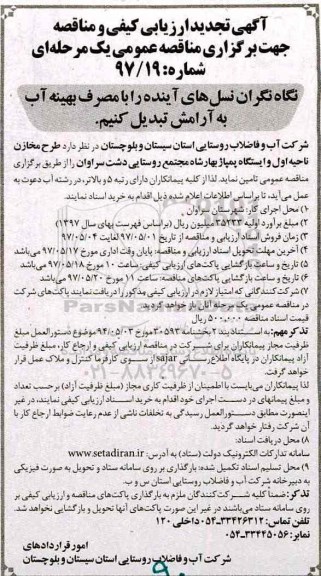 آگهی تجدید ارزیابی کیفی و مناقصه
جهت برگزاری مناقصه عمومی یک مرحله‌ای
شماره: ۹۷/۱۹
نگاه نگران نسل‌های آینده را با مصرف بهینه آب
به آرامش تبدیل کنیم.
شرکت آب و فاضلاب روستایی استان سیستان و بلوچستان در نظر دارد طرح مخازن
ناحیه اول و ایستگاه پمپاژ بهارشاه مجتمع روستایی دشت سراوان را از طریق برگزاری
مناقصه عمومی تامین نماید. لذا از کلیه پیمانکاران دارای رتبه ۵ و بالاتر، در رشته آب دعوت به
عمل می‌آید، تا براساس اطلاعات اعلام شده ذیل اقدام به خرید اسناد نمایند.
۱) محل اجرای کار: شهرستان سراوان
۲) مبلغ برآورد اولیه ۳۵۲۳۳ میلیون ریال (براساس فهرست بهای سال ۱۳۹۷)
۳) زمان فروش اسناد ارزیابی و مناقصه: از تاریخ ۹۷/۰۵/۰۱ لغایت ۹۷/۰۵/۰۴
۴) آخرین مهلت تحویل اسناد ارزیابی و مناقصه: پایان وقت اداری مورخ ۹۷/۰۵/۱۷ می‌باشد
۵) تاریخ و ساعت بازگشایی پاکت‌های ارزیابی کیفی: ساعت ۱۰ مورخ ۹۷/۰۵/۱۸ می‌باشد
۶) تاریخ و ساعت بازگشایی پاکت‌های مناقصه: ساعت ۱۱ مورخ ۹۷/۰۵/۲۰ می‌باشد
۷) شرکت‌کنندگانی که امتیاز لازم در ارزیابی کیفی مذکور را دریافت نمایند پاکت‌های شرکت
در مناقصه عمومی یک مرحله آنان باز خواهد گردید.
قیمت اسناد مناقصه ۵۰۰،۰۰۰ ریال
تذکر مهم: به استناد بند ۲ بخشنامه ۳۰۵۹۳ مورخ ۹۴/۰۵/۰۳ موضوع دستورالعمل مبلغ
ظرفیت مجاز پیمانکاران برای شرکت در مناقصه ارزیابی کیفی و ارجاع کار، مبلغ ظرفیت
آزاد پیمانکاران در پایگاه اطلاع رسانی sajar از سوی کارفرما کنترل و ملاک عمل قرار
خواهد گرفت.
لذا پیمانکاران می‌بایست با اطمینان از ظرفیت کاری مجاز (مبلغ ظرفیت آزاد) برحسب تعداد
و مبلغ پیمانهای در دست اجرای خود اقدام به خرید اسناد ارزیابی کیفی نمایند، در غیر
اینصورت مطابق دستورالعمل رسیدگی به تخلفات ناشی از عدم رعایت ضوابط ارجاع کار با
آن شرکت رفتار خواهد گردید.
۸) محل دریافت اسناد:
سامانه تدارکات الکترونیک دولت (ستاد) به آدرس: www.setadiran.ir
۹) محل تسلیم اسناد تکمیل شده: بارگذاری بر روی سامانه ستاد و تحویل به صورت فیزیکی
به دبیرخانه شرکت آب و فاضلاب روستایی استان س و ب.
تذکر: ضمنا کلیه شرکت‌کنندگان ملزم به بارگذاری پاکت‌های مناقصه و ارزیابی کیفی بر
روی سامانه ستاد می‌باشند در غیر این صورت پاکت‌های آنها تحویل و بازگشایی نخواهد شد.
تلفن تماس: ۳۳۴۲۶۳۱۲-۰۵۴ داخلی ۱۲۰
نمابر: ۳۳۴۴۵۰۵۶-۰۵۴
امور قراردادهای
شرکت آب و فاضلاب روستایی استان سیستان و بلوچستان